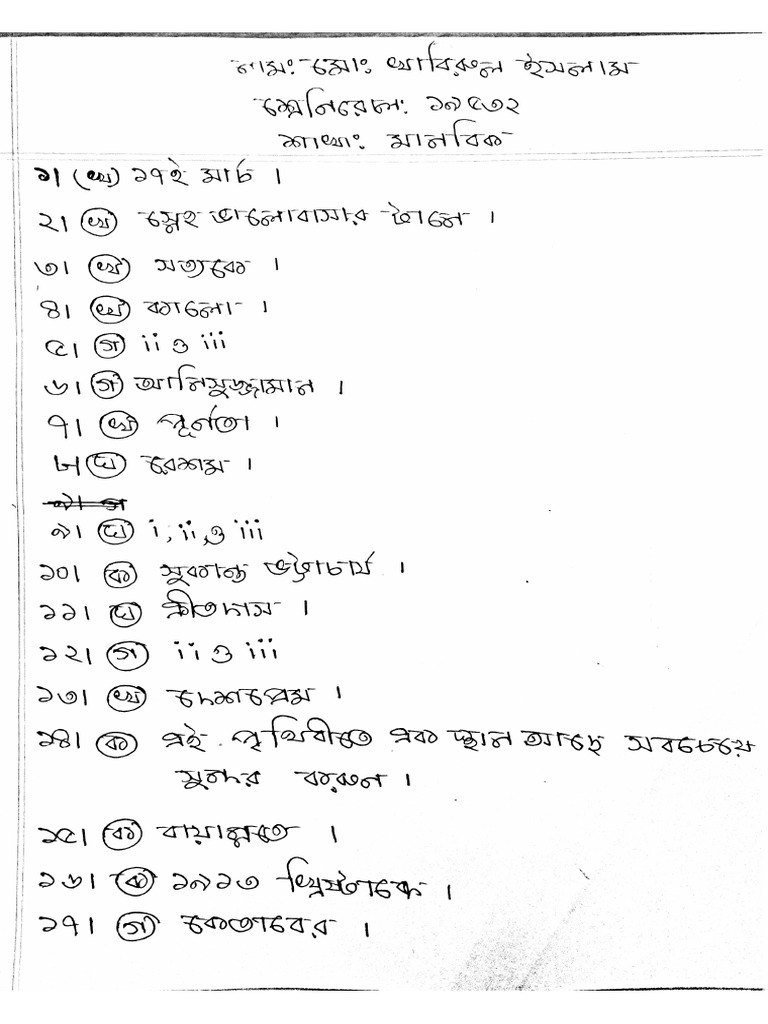 নামঃ মোঃ খাবিরুল ইসলাম
শ্রেনিরোলঃ ১৯৫৩২
শাখাঃ মানবিক
১। (খ) ১৭ই মার্চ ।
২। (খ) স্নেহ ভালোবাসার টানে ।
৩। (খ) সত্যকে ।
৪। (খ) কালো ।
৫। (গ) ii ও iii
৬। (গ) আনিসুজ্জামান ।
৭। (খ) পূর্নতা ।
৮। (ঘ) রেশম ।
৯। গ
৯। (ঘ) i, ii ও iii
১০। (ক) সুকান্ত ভট্টাচার্য ।
১১। (ঘ) ক্রীতদাস ।
১২। (গ) ii ও iii
১৩। (খ) দেশপ্রেম ।
১৪। (ক) এই পৃথিবীতে এক স্থান আছে সবচেয়ে
সুন্দর করুণ ।
১৫। (ক) বায়ান্নতে ।
১৬। (ক) ১৯১৩ খ্রিষ্টাব্দে ।
১৭। (গ) কেতাবের ।